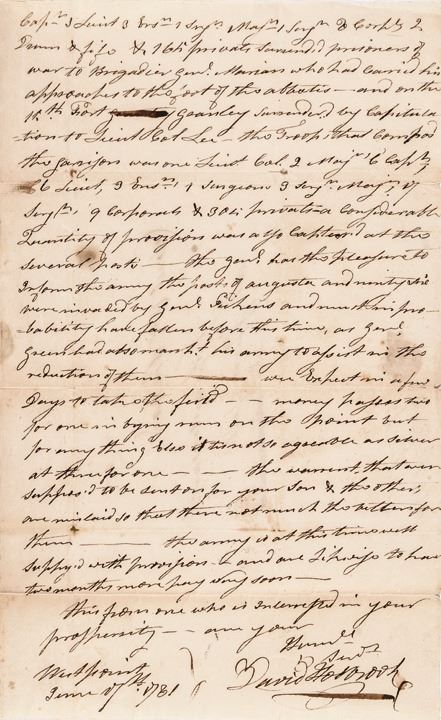 Capt. 3 Lieut 3 Ens. 1 Surgn Majr 1 Surgn 8 Corpls 2
Drum & fife & 164 privats surrend.d prisoners of
war to Brigadier Genl. Marian who had carried his
approaches to the foot of the abbatis — and on the
15th Fort Granbey Surrender.d by Capitula
tion to Lieut Col Lee — the Troops that Compos.d
the garrison was one Lieut Col. 2 Majr. 6 Capts.
6 Lieut, 3 Ens. 1 Surgeon 3 Serjt Majr. 17
Serjts 9 Corporals & 304 privats a Considerable
Quantity of provisions was also Captured at the
several posts — the Genl. has the pleasure to
Inform the army the posts of augusta and ninty six
were invaded by Genl. Pickens and must in pro
-bability have fallen before this time, as Genl
Green had also march.d his army to assist in the
reduction of them — we Expect in a few
Days to take the field — money passes two
for one in bying rum on the point but
for any thing Else it is not so agreeable as silver
at three for one — — the warrent that ware
suppos.d to be sent on for your son & the others
are mislaid so that there not much the better for
them — the army is at this time well
supply.d with provision — and are Likwise to have
two months more pay very soon —
this from one who is Interested in your
prosperity — are your
Humle
Servt
David Holbrook
Westpoint
June 17th. 1781